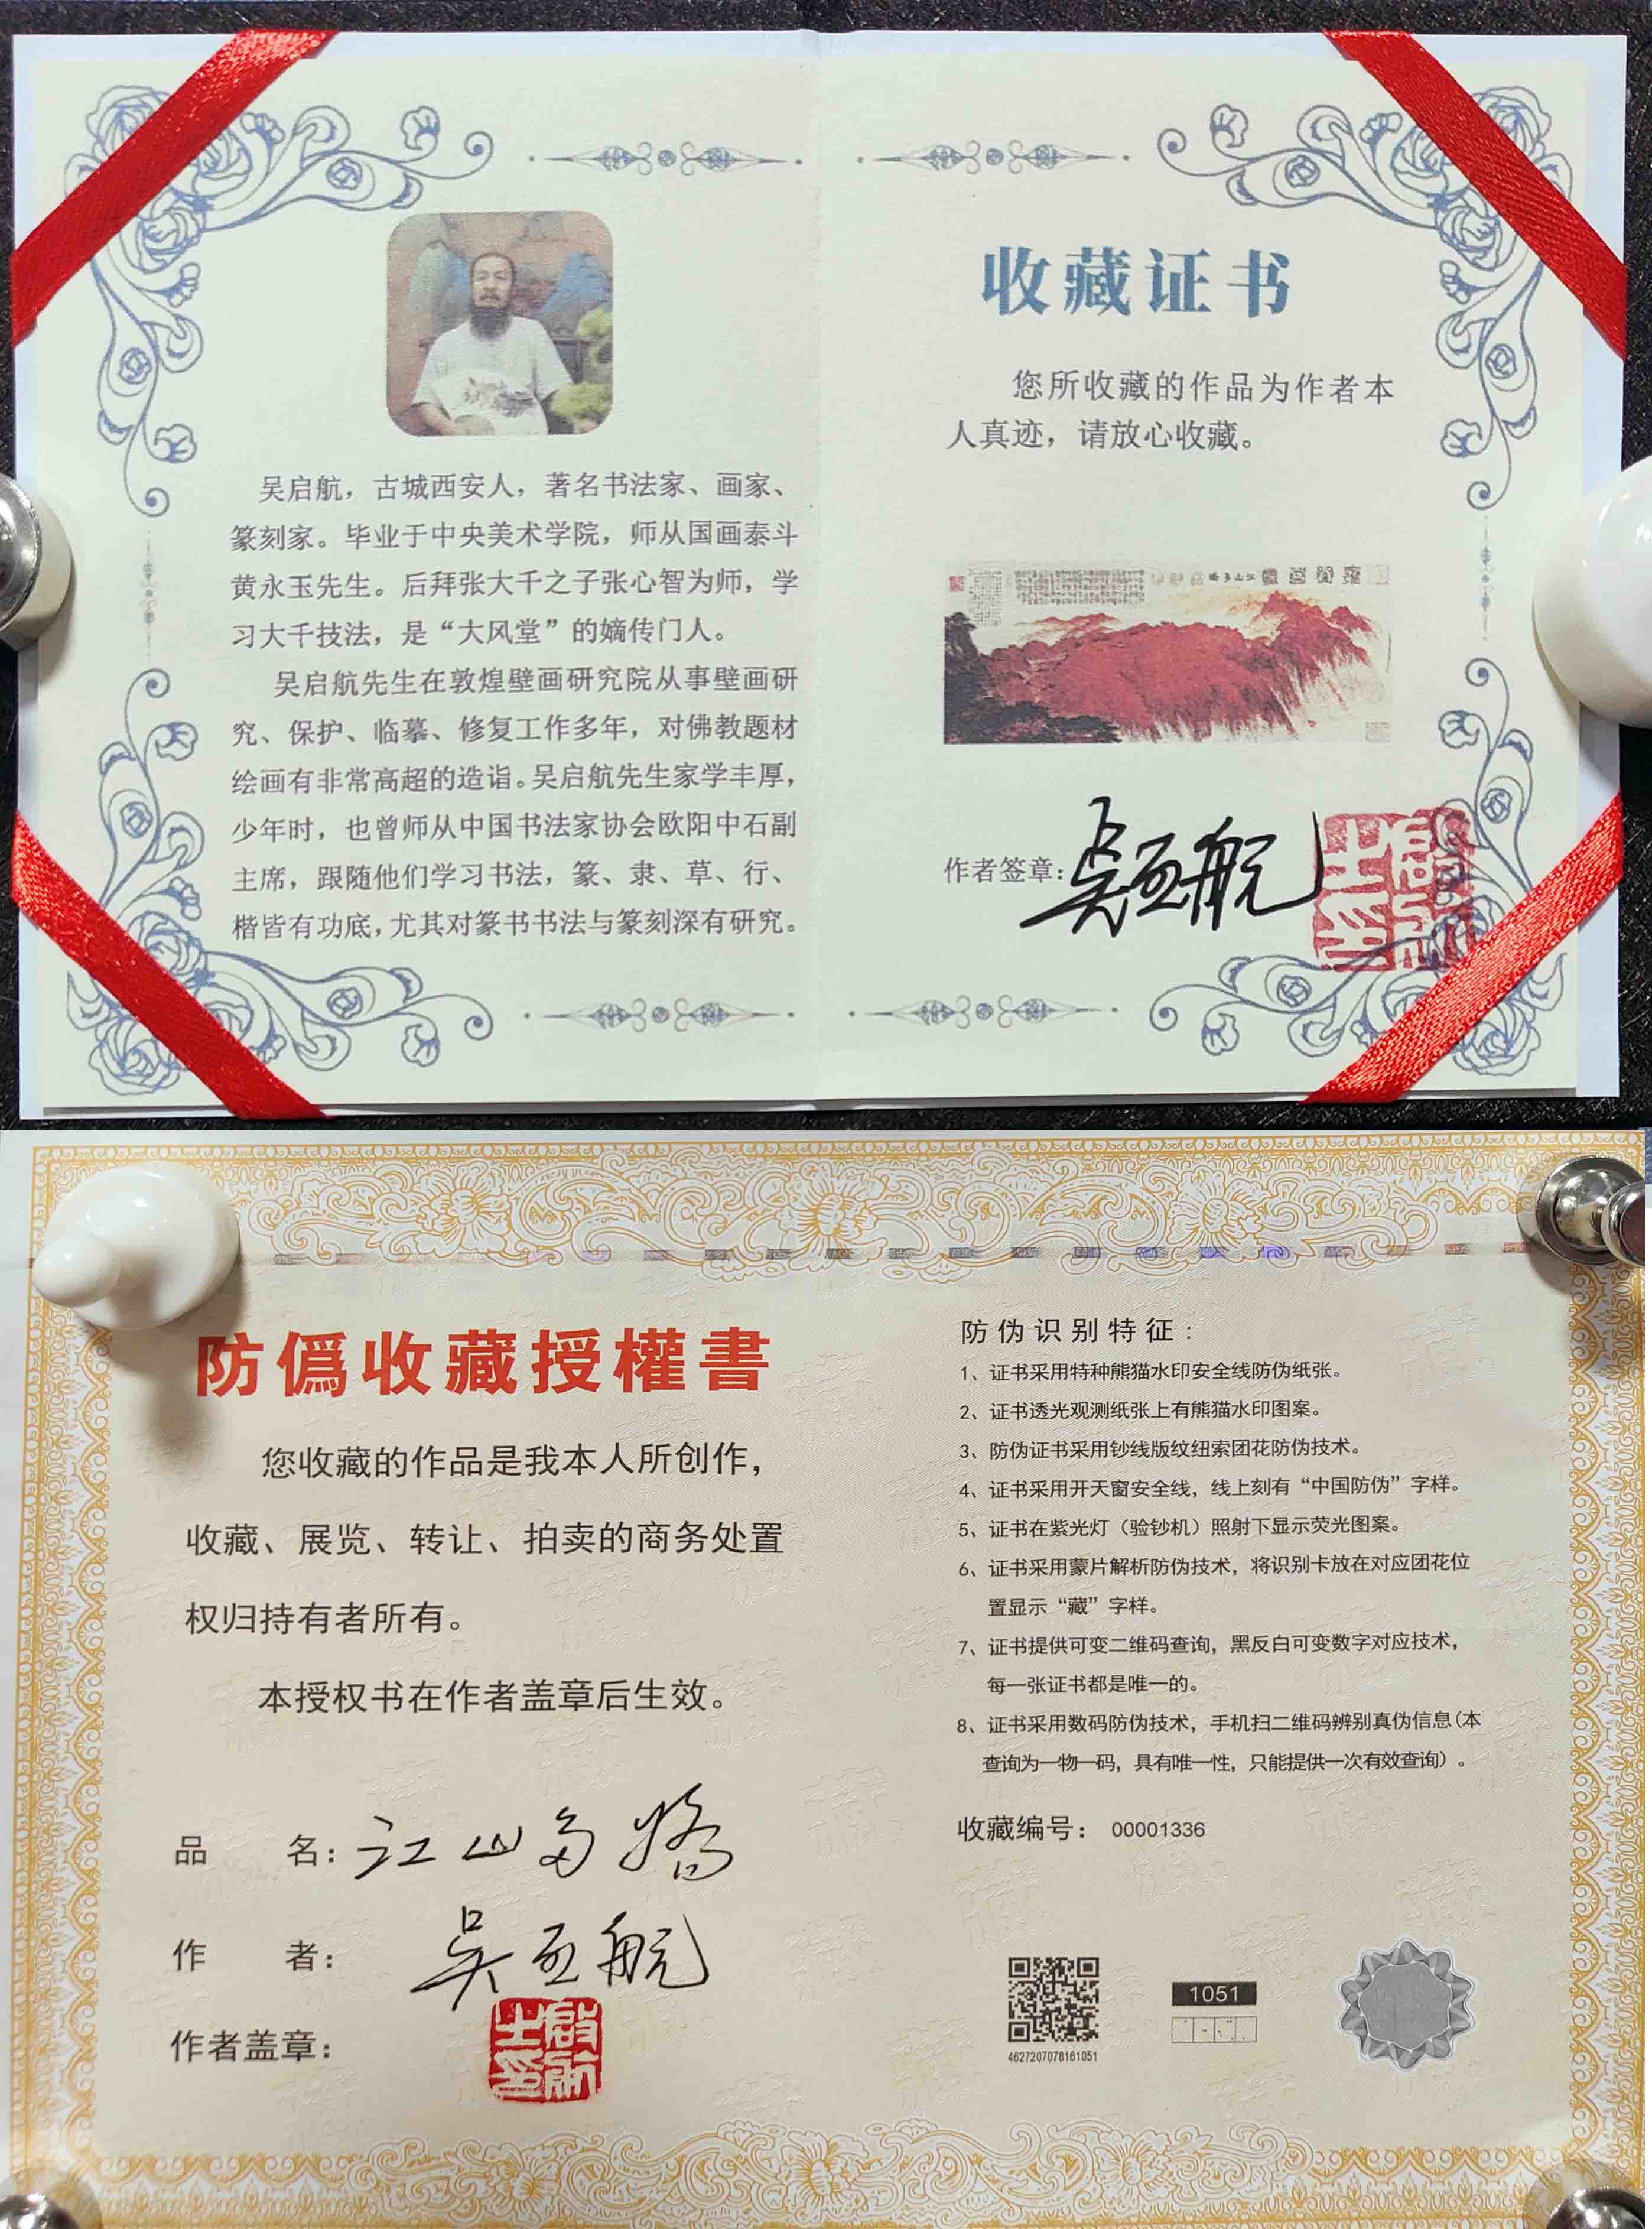 吴启航，古城西安人，著名书法家、画家、
篆刻家。毕业于中央美术学院，师从国画泰斗
黄永玉先生。后拜张大千之子张心智为师，学
习大千技法，是“大风堂”的嫡传门人。
吴启航先生在敦煌壁画研究院从事壁画研
究、保护、临摹、修复工作多年，对佛教题材
绘画有非常高超的造诣。吴启航先生家学丰厚，
少年时，也曾师从中国书法家协会欧阳中石副
主席，跟随他们学习书法，篆、隶、草、行、
楷皆有功底，尤其对篆书书法与篆刻深有研究。
收藏证书
您所收藏的作品为作者本
人真迹，请放心收藏。
作者签章：吴启航
防僞收藏授權書
您收藏的作品是我本人所创作，
收藏、展览、转让、拍卖的商务处置
权归持有者所有。
本授权书在作者盖章后生效。
品 名：江山多娇
作 者：吴启航
作者盖章：
啟航之印
防伪识别特征：
1、证书采用特种熊猫水印安全线防伪纸张。
2、证书透光观测纸张上有熊猫水印图案。
3、防伪证书采用钞线版纹纽索团花防伪技术。
4、证书采用开天窗安全线，线上刻有“中国防伪”字样。
5、证书在紫光灯（验钞机）照射下显示荧光图案。
6、证书采用蒙片解析防伪技术，将识别卡放在对应团花位
置显示“藏”字样。
7、证书提供可变二维码查询，黑反白可变数字对应技术，
每一张证书都是唯一的。
8、证书采用数码防伪技术，手机扫二维码辨别真伪信息(本
查询为一物一码，具有唯一性，只能提供一次有效查询）。
收藏编号： 00001336
1051
4627207078161051